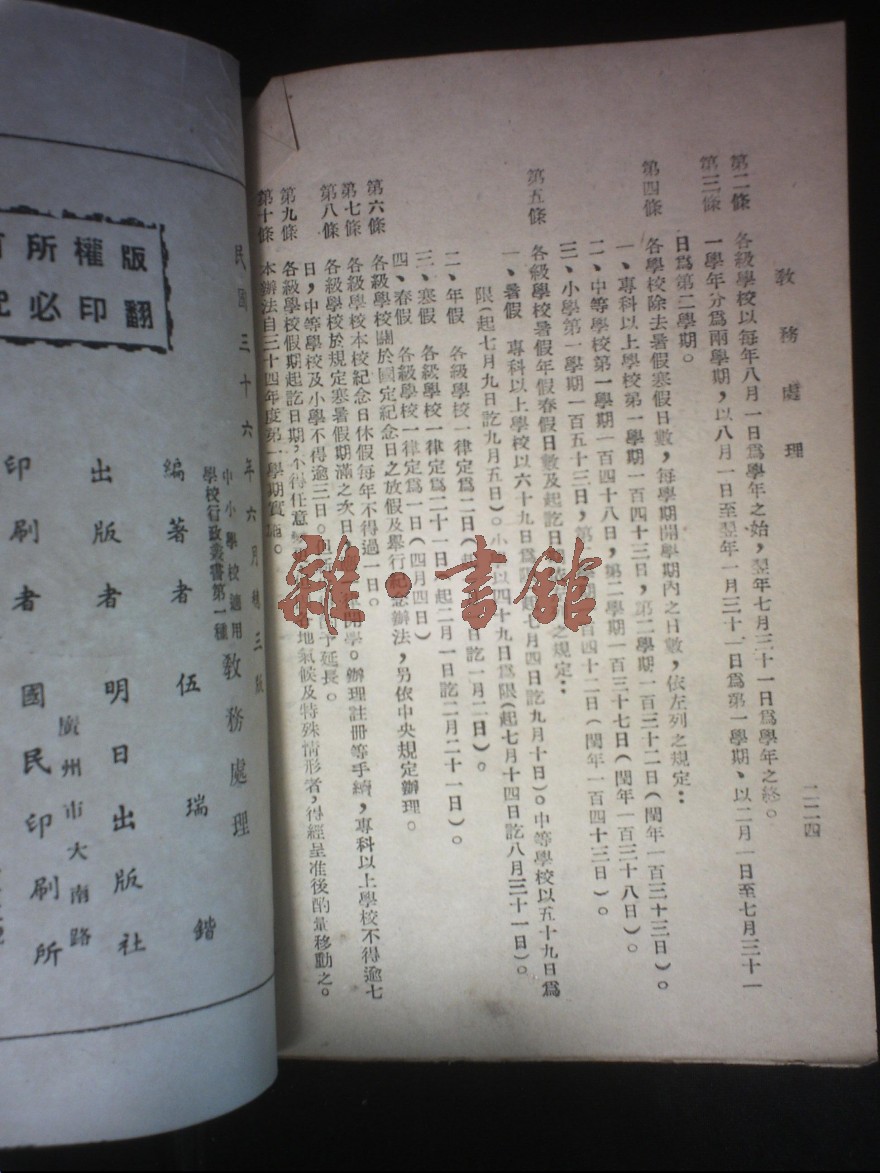 教務處理
二二四
第二條　各級學校以每年八月一日爲學年之始，翌年七月三十一日爲學年之終。
第三條　一學年分爲兩學期，以八月一日至翌年一月三十一日爲第一學期、以二月一日至七月三十一
日爲第二學期。
第四條　各學校除去暑假寒假日數，每學期開學期內之日數，依左列之規定：
一、專科以上學校第一學期一百四十三日，第二學期一百三十二日（閏年一百三十三日）。
二、中等學校第一學期一百四十八日，第二學期一百三十七日（閏年一百三十八日）。
三、小學第一學期一百五十三日，第　學期　百四十二日（閏年一百四十三日）。
第五條　各級學校暑假年假春假日數及起訖日　　之規定：
一、暑假　專科以上學校以六十九日爲　　起七月四日訖九月十日）。中等學校以五十九日爲
限（起七月九日訖九月五日）。小　以四十九日爲限（起七月十四日訖八月三十一日）。
二、年假　各級學校一律定爲二日（　　　　訖一月二日）。
三、寒假　各級學校一律定爲二十一日起二月一日訖二月二十一日）。
四、春假　各級學校一律定爲一日（四月四日）
第六條　各級學校關於國定紀念日之放假及舉行紀念辦法，另依中央規定辦理。
第七條　各級學校本校紀念日休假每年不得過一日。
第八條　各級學校於規定寒暑假期滿之次日　　律開學。辦理註冊等手續，專科以上學校不得逾七
日，中等學校及小學不得逾三日。　　　　予延長。
第九條　各級學校假期起訖日期，不得任意　　　　地氣候及特殊情形者，得經呈准後酌量移動之。
第十條　本辦法自三十四年度第一學期實施。
雜·書館
民國三十六年六月　三版
中小學校適用
學校行政叢書第一種
教務處理
編著者　伍瑞鍇
出版者　明日出版社
廣州市大南路
印刷者　國民印刷所
版權所
翻印必